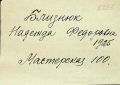 Близнюк
Надежда Федоровна
1925
Мастерская 100.